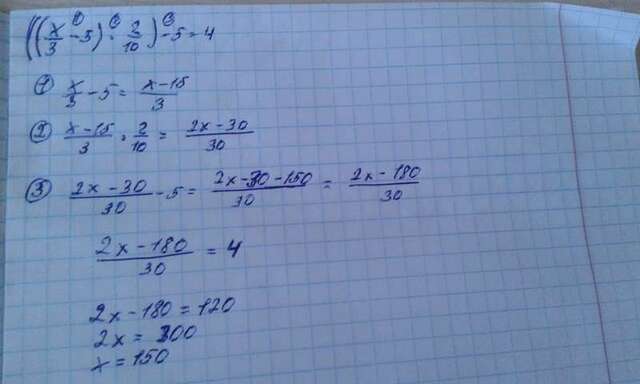 ((x/3 - 5) · 2/10) - 5 = 4
① x/3 - 5 = x-15/3
② x-15/3 · 2/10 = 2x-30/30
③ 2x-30/30 - 5 = 2x-30-150/30 = 2x-180/30
2x-180/30 = 4
2x-180 = 120
2x = 300
x = 150